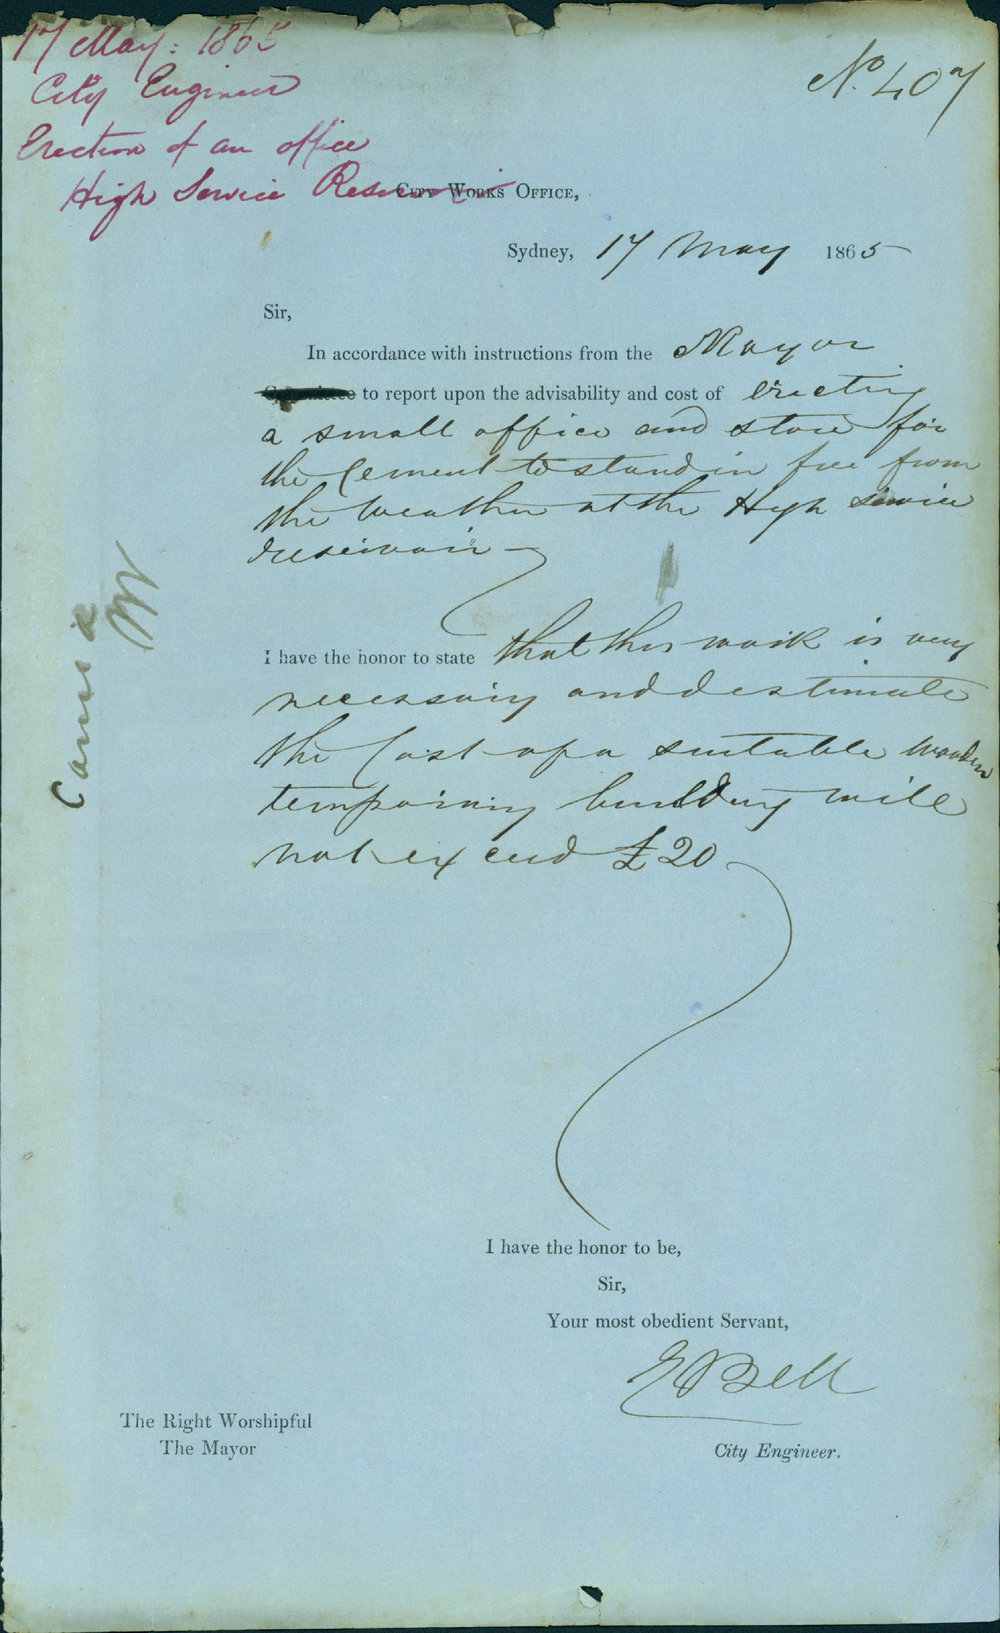 17 May: 1865
City Engineer
Erection of an office
High Service Reservoir
No. 407
City Works Office,
Sydney, 17 May 1865
Sir,
In accordance with instructions from the Mayor
Committee to report upon the advisability and cost of erecting
a small office and store for
the Cement to stand in free from
the Weather at the High Service
reservoir
I have the honor to state that this work is very
necessary and I estimate
the Cost of a suitable wooden
temporary building will
not exceed £20
I have the honor to be,
Sir,
Your most obedient Servant,
E Bell
City Engineer.
The Right Worshipful
The Mayor